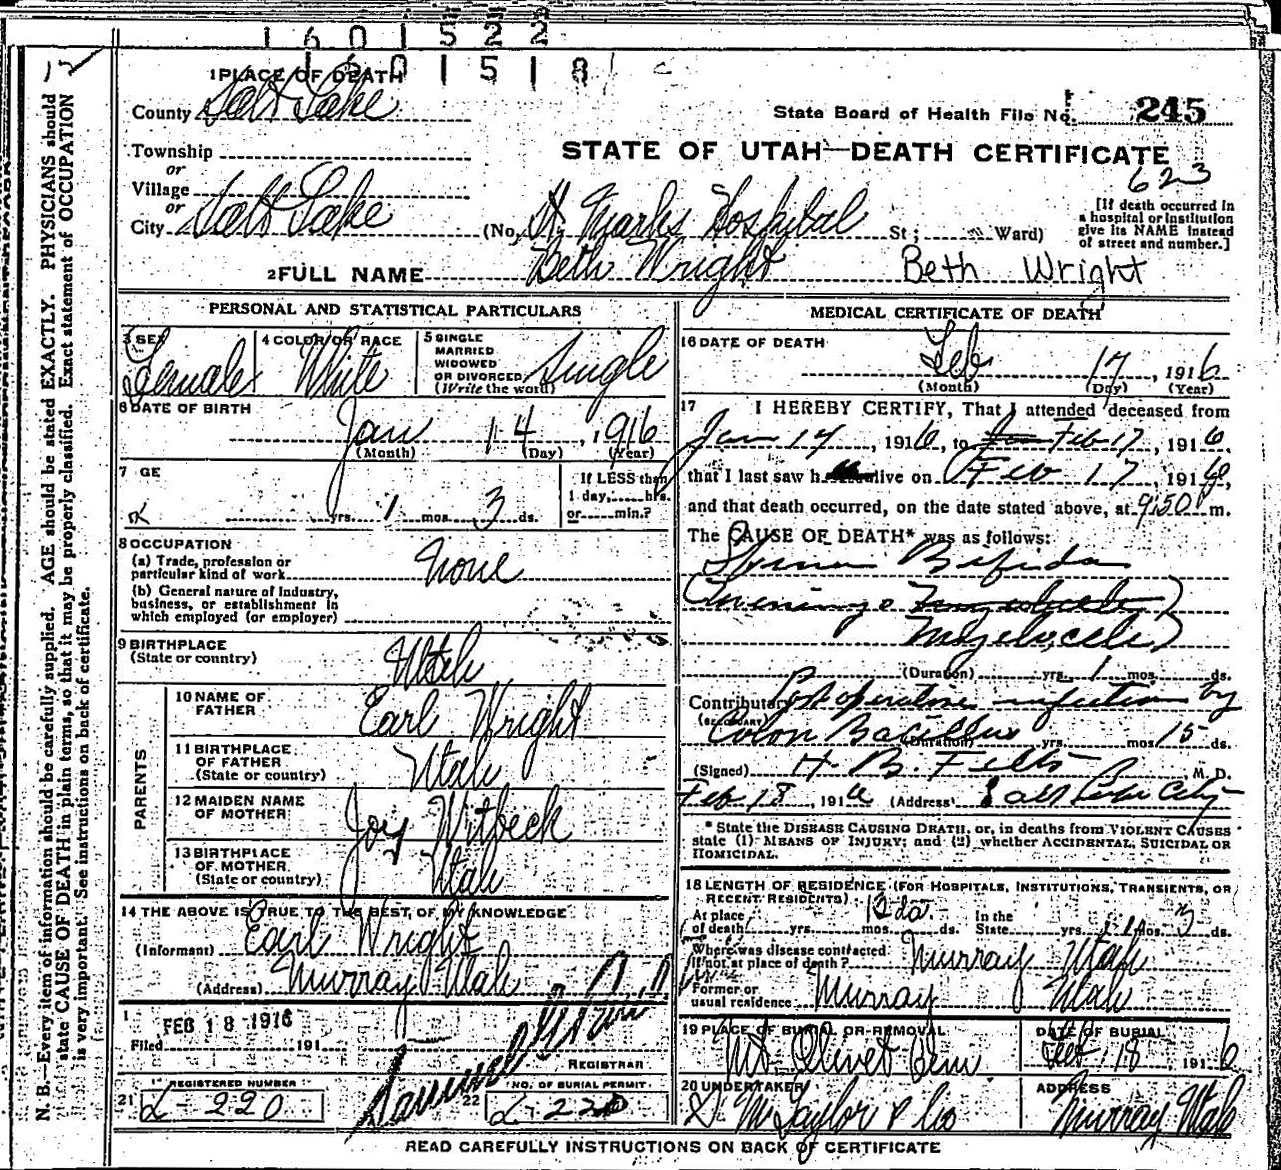 1601522
1601518
1 PLACE OF DEATH
County Salt Lake
State Board of Health File No. 245
Township
STATE OF UTAH—DEATH CERTIFICATE
or
623
Village
or
City Salt Lake (No. St Marks Hospital St; Ward)
[If death occurred in a hospital or institution give its NAME instead of street and number.]
2 FULL NAME Beth Wright Beth Wright
PERSONAL AND STATISTICAL PARTICULARS
3 SEX Female
4 COLOR OR RACE White
5 SINGLE MARRIED WIDOWED OR DIVORCED (Write the word) Single
6 DATE OF BIRTH
Jan 14, 1916
(Month) (Day) (Year)
7 GE
yrs. 1 mos. 3 ds.
If LESS than 1 day, hrs. or min.?
8 OCCUPATION
(a) Trade, profession or particular kind of work None
(b) General nature of Industry, business, or establishment in which employed (or employer)
9 BIRTHPLACE
(State or country) Utah
PARENTS
10 NAME OF FATHER Earl Wright
11 BIRTHPLACE OF FATHER (State or country) Utah
12 MAIDEN NAME OF MOTHER Joy Witbeck
13 BIRTHPLACE OF MOTHER (State or country) Utah
14 THE ABOVE IS TRUE TO THE BEST OF MY KNOWLEDGE
(Informant) Earl Wright
(Address) Murray Utah
FEB 18 1916
Filed 191
REGISTRAR
21 REGISTERED NUMBER
L-220
22 NO. OF BURIAL PERMIT
L-220
MEDICAL CERTIFICATE OF DEATH
16 DATE OF DEATH
Feb 17, 1916
(Month) (Day) (Year)
17 I HEREBY CERTIFY, That I attended deceased from
Jan 14, 1916, to Feb 17, 1916,
that I last saw h alive on Feb 17, 1916,
and that death occurred, on the date stated above, at 9:50 m.
The CAUSE OF DEATH* was as follows:
Spina Bifida
(Meningo
Myelocele)
(Duration) yrs. 1 mos. ds.
Contributory Post operative infection by
(SECONDARY) Colon Bacillus (Duration) yrs. mos. 15 ds.
(Signed) H. B. Felts, M. D.
Feb 18, 1916 (Address) Salt Lake City
* State the DISEASE CAUSING DEATH, or, in deaths from VIOLENT CAUSES
state (1) MEANS OF INJURY; and (2) whether ACCIDENTAL, SUICIDAL OR
HOMICIDAL.
18 LENGTH OF RESIDENCE (FOR HOSPITALS, INSTITUTIONS, TRANSIENTS, OR
RECENT RESIDENTS)
At place of death yrs. mos. 12 ds. In the State yrs. 1 mos. 3 ds.
Where was disease contracted if not at place of death? Murray Utah
Former or usual residence Murray Utah
19 PLACE OF BURIAL OR REMOVAL
Mt. Olivet Cem
DATE OF BURIAL
Feb 18, 1916
20 UNDERTAKER
D M Taylor & Co
ADDRESS
Murray Utah
READ CAREFULLY INSTRUCTIONS ON BACK OF CERTIFICATE
N. B.—Every item of information should be carefully supplied. AGE should be stated EXACTLY. PHYSICIANS should
state CAUSE OF DEATH in plain terms, so that it may be properly classified. Exact statement of OCCUPATION
is very important. See instructions on back of certificate.